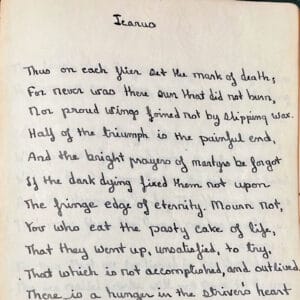 Icarus
Thus on each flier set the mark of death;
For never was there sun that did not burn,
Nor proud wings joined not by slipping wax.
Half of the triumph is the painful end,
And the bright prayers of martyrs be forgot
If the dark dying fixed them not upon
The fringe edge of eternity. Mourn not,
You who eat the pasty cake of life,
That they went up, unsatisfied, to try,
That which is not accomplished, and outlived
There is a hunger in the striver's heart